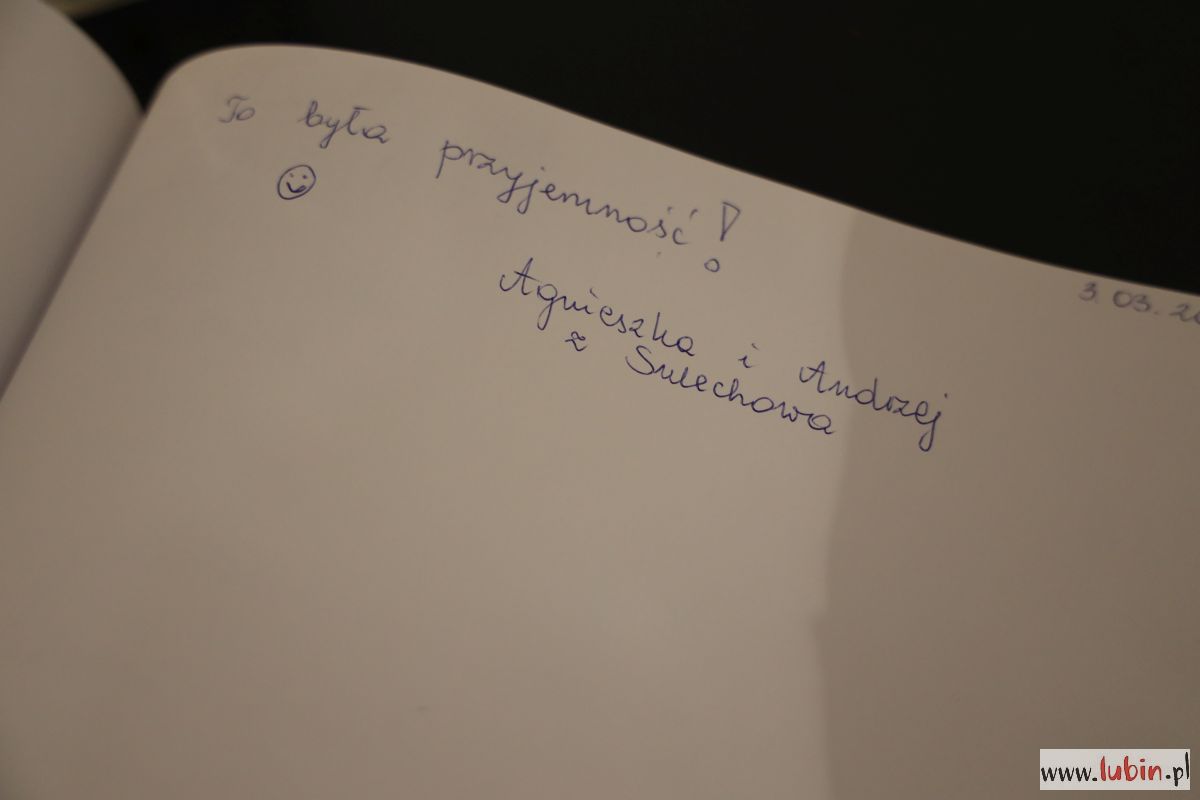 To była przyjemność!
Agnieszka i Andrzej
z Sulechowa
3.03.20
www.lubin.pl